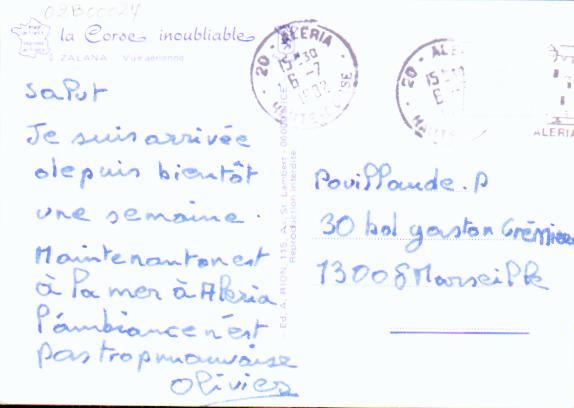 02B00024
la Corse inoubliable
ZALANA Vue aérienne
20 - ALERIA
15H30
6-7
1982
HAUTE-CORSE
20 - ALE
15H30
6
HAUTE
ALERIA
salut
Je suis arrivée
depuis bientôt
une semaine.
Maintenant on est
à la mer à Aleria
l'ambiance n'est
pas trop mauvaise
Olivier
Ed. A. RION, 115, Av. St. Lambert - 06000 NICE
Reproduction interdite
Pouillaude. P
30 bd gaston Crémieux
13008 Marseille